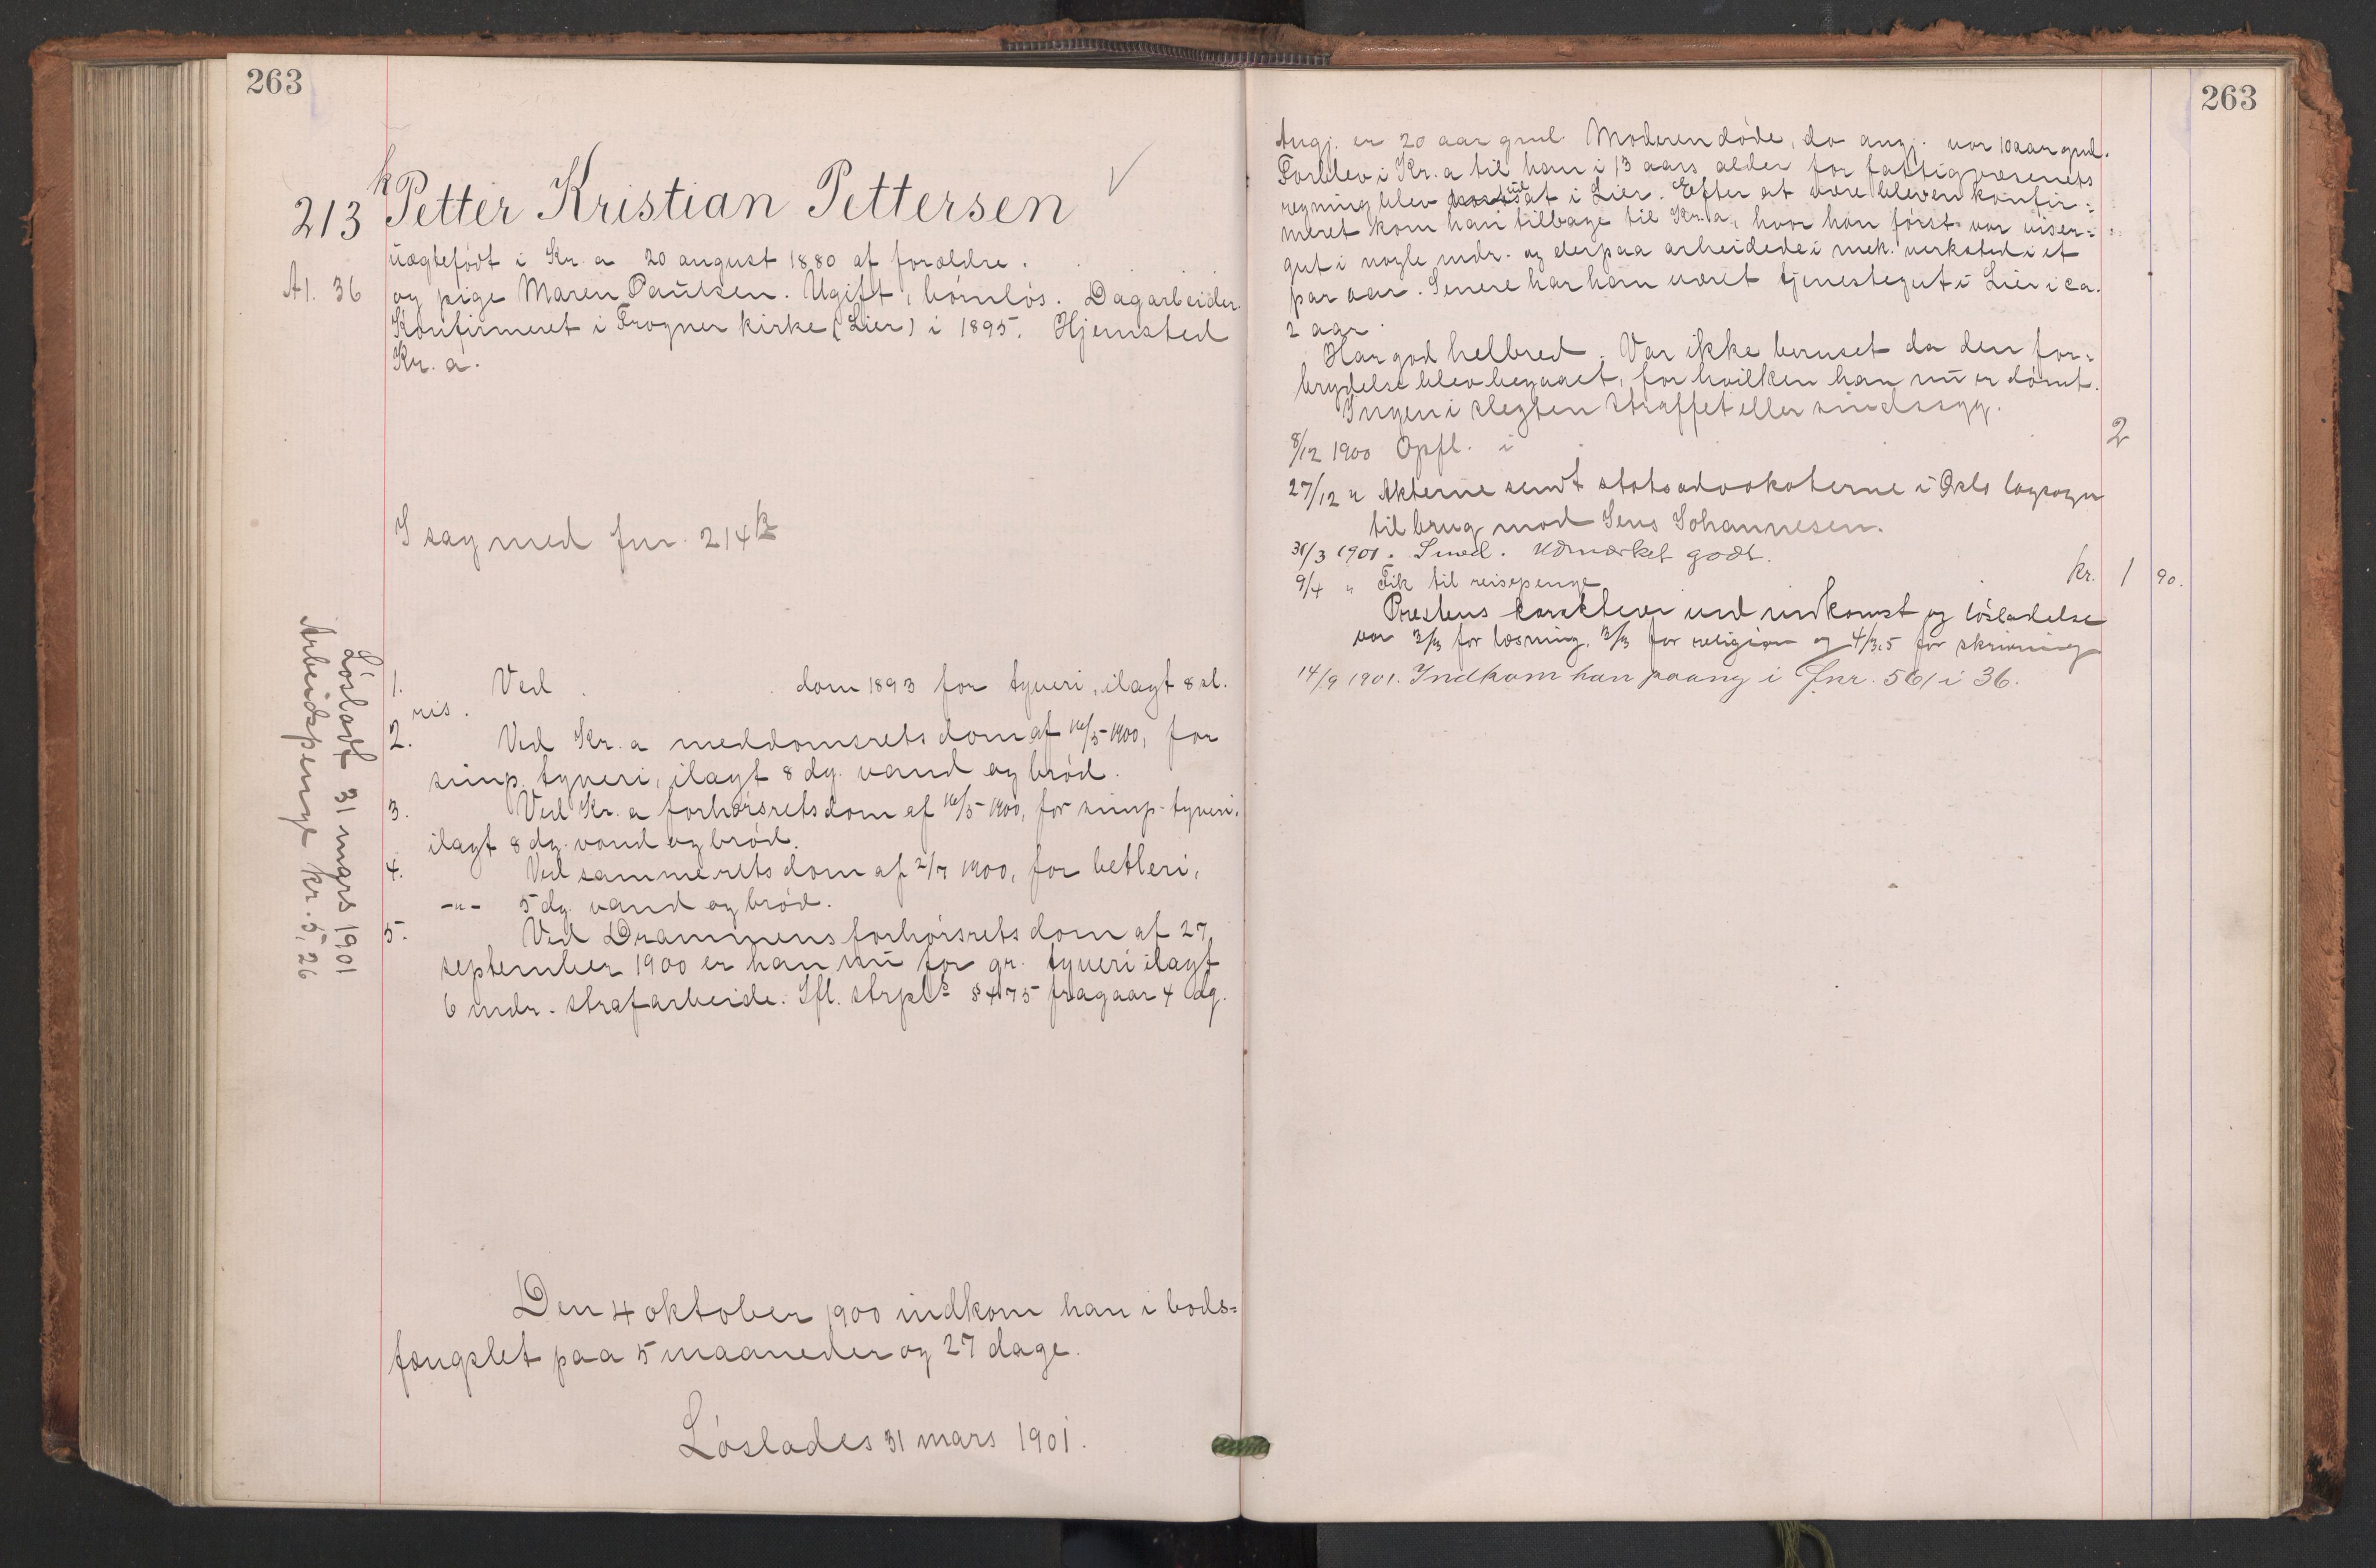 263
213 k Petter Kristian Pettersen
uægtefødt i Kr.a 20 august 1880 af forældre .
A1. 36
og pige Maren Paulsen. Ugift, børnløs. Dagarbeider.
Konfirmeret i Frogner kirke (Lier) i 1895. Hjemsted
Kr.a.
I sag med fnr. 214 k
1. Ved . . . dom 1893 for tyveri, ilagt 8 sl.
ris.
2. Ved Kr.a meddomsrets dom af 16/5 1900, for
simp. tyveri, ilagt 8 dg. vand og brød.
3. Ved Kr.a forhørsretsdom af 16/5 1900, for simp. tyveri,
ilagt 8 dg. vand og brød.
4. Ved samme rets dom af 2/7 1900, for betleri,
-"- 5 dg. vand og brød.
5. Ved Drammens forhørsrets dom af 27
september 1900 er han nu for gr. tyveri ilagt
6 mdr. strafarbeide. Ifl. strpls § 475 fragaar 4 dg.
Løsladt 31 mars 1901
Arbeidspenge kr. 5,26
Den 4 oktober 1900 indkom han i bods=
fængslet paa 5 maaneder og 27 dage.
Løslades 31 mars 1901.
263
Angj. er 20 aar gml. Moderen døde, da angj. var 10 aar gml.
Forblev i Kr.a til han i 13 aars alder for fattigvæsenets
regning blev udsat i Lier. Efter at være bleven konfir=
meret kom han tilbage til Kr.a, hvor han først var viser=
gut i nogle mdr. og derpaa arbeidede i mek. verksted i et
par aar. Senere har han været tjenestegut i Lier i ca.
2 aar.
Har god helbred. Var ikke beruset da den for=
brydelse blev begaaet, for hvilken han nu er dømt.
Ingen i slegten straffet eller sindssyg.
8/12 1900 Opfl. i 2
27/12 " Akterne sendt statsadvokaterne i Oslo lagsogn
til brug mod Jens Johannesen.
31/3 1901. Smed. Udmærket godt.
9/4 " Fik til reisepenge kr. 1 90.
Prestens karakterer ved indkomst og løsladelse
var 3/3 for læsning, 3/3 for religion og 4/3,5 for skrivning
14/9 1901. Indkom han paany i fnr. 561 i 36.